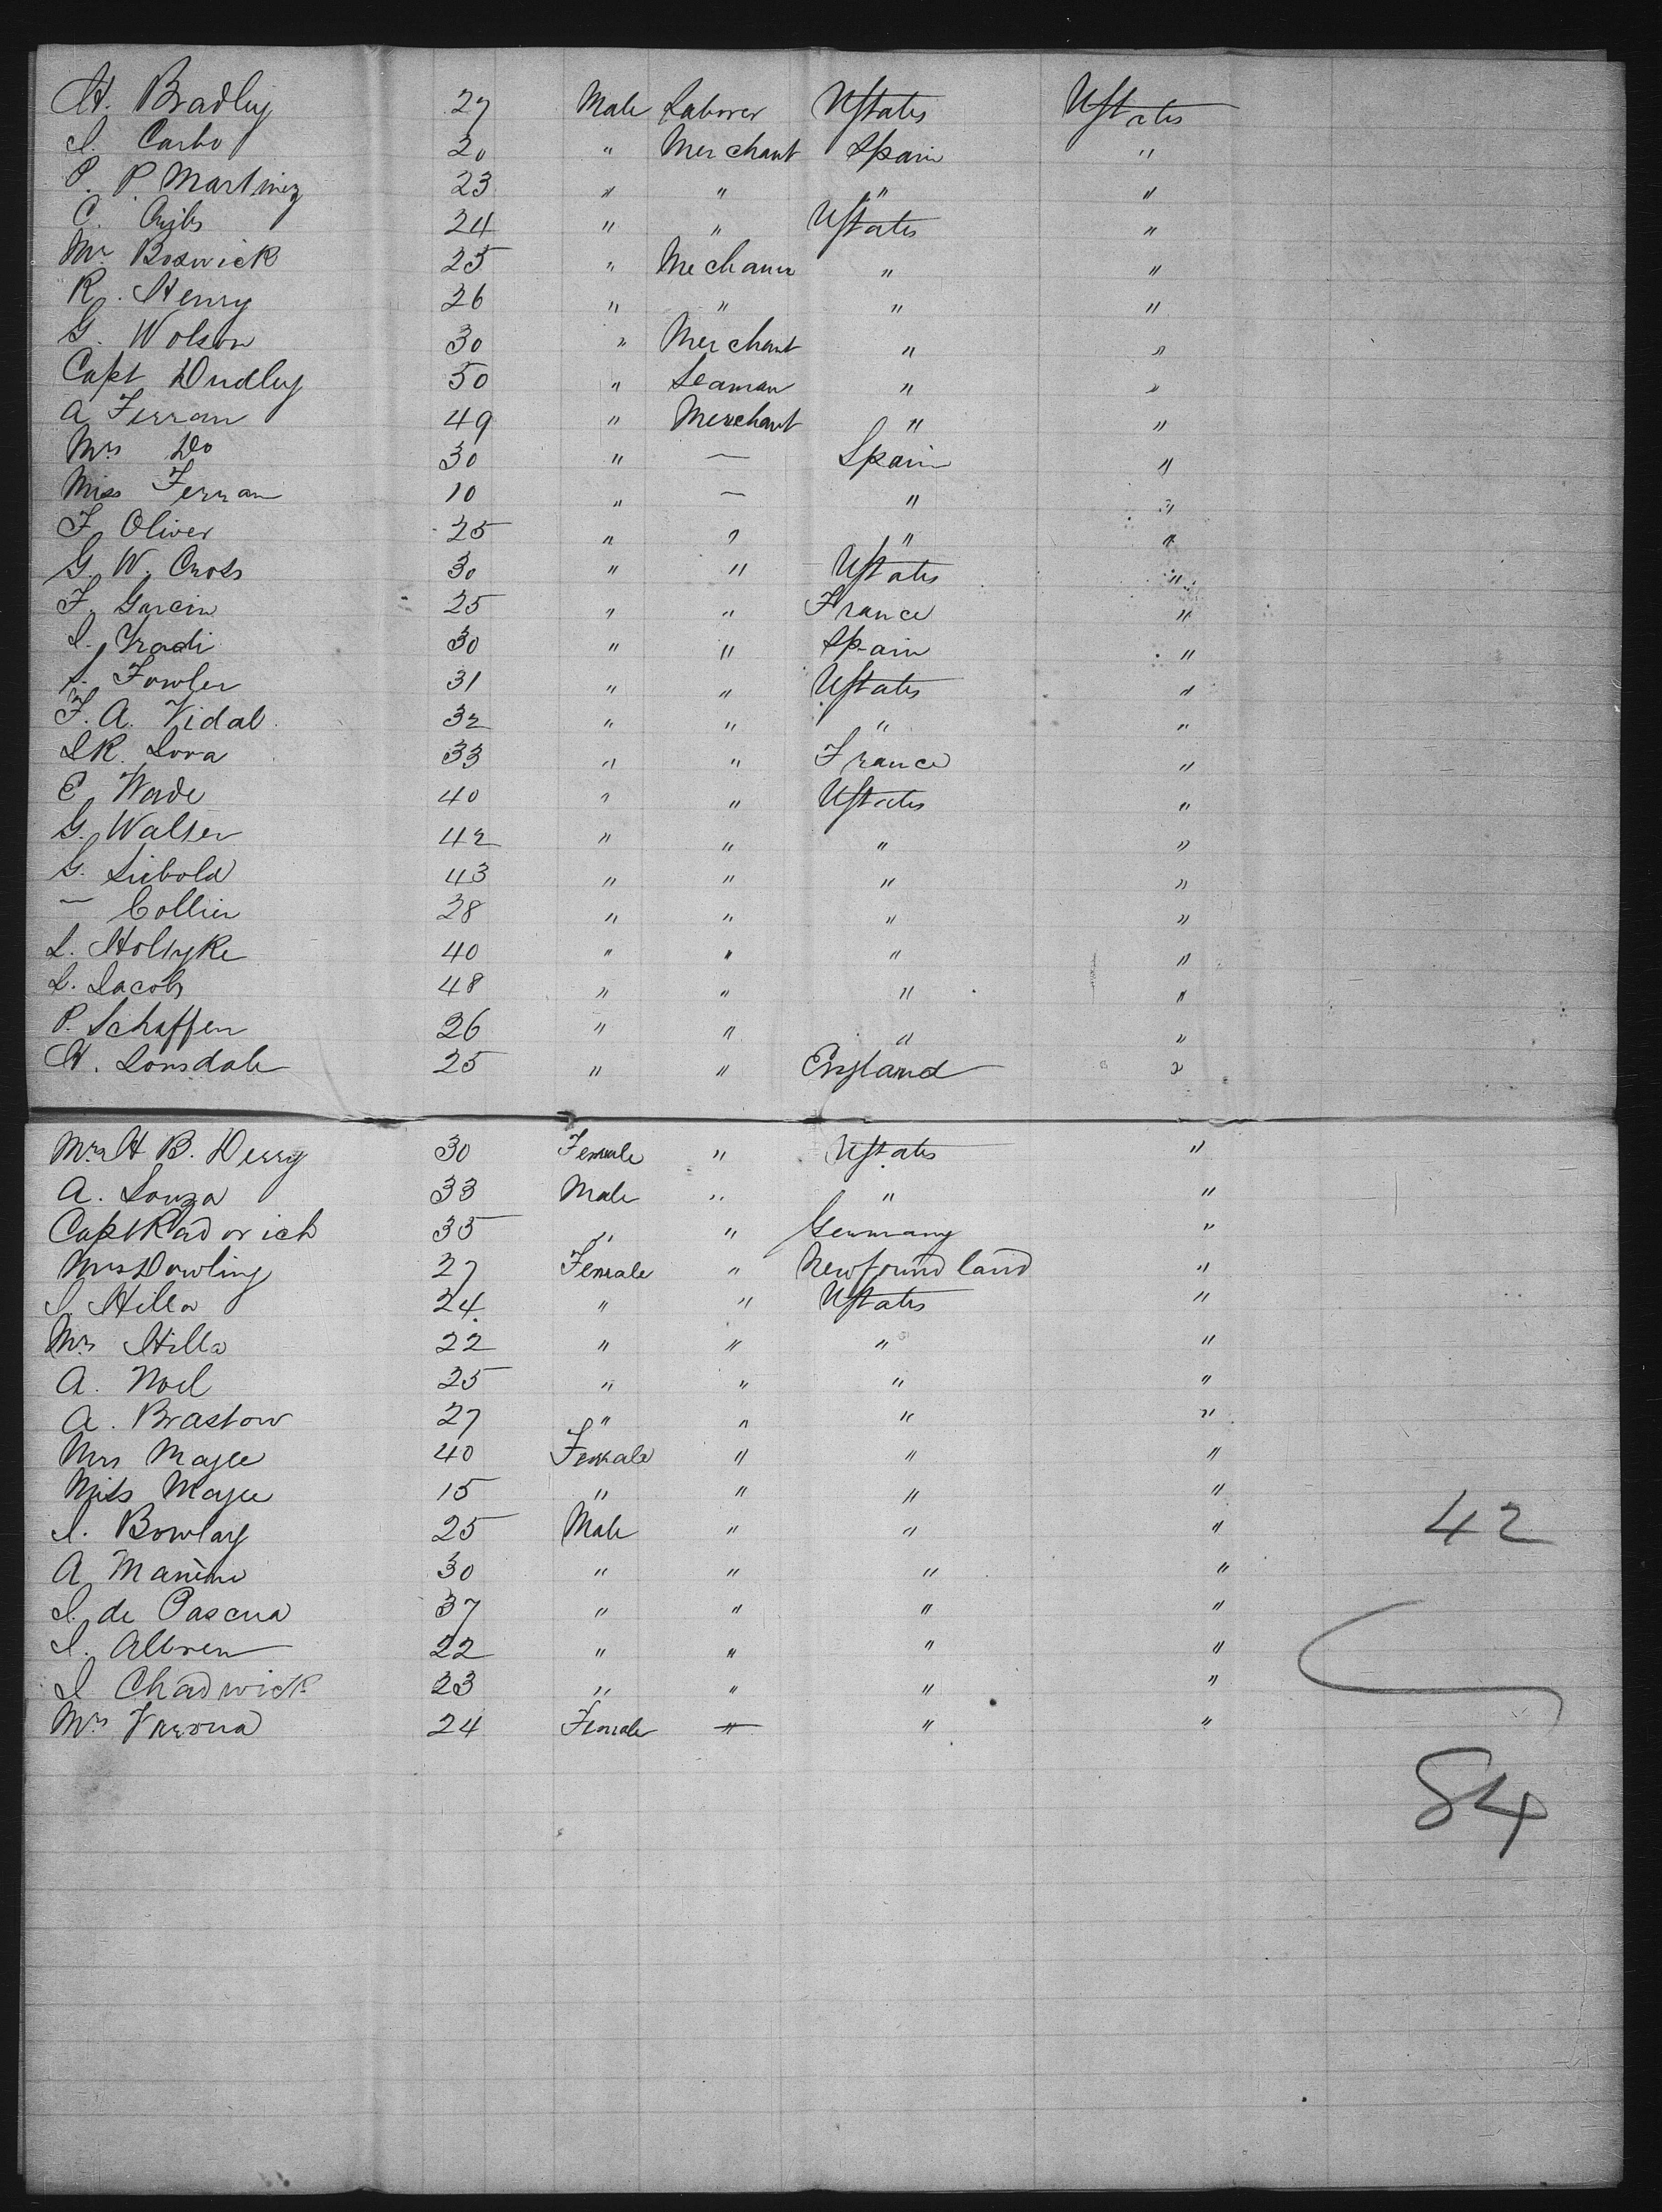 H. Bradley 27 Male Laborer UStates UStates
J. Carbo 20 " Merchant Spain "
P. P. Martinez 23 " " " "
C. 24 " " UStates "
Mr. Boswick 25 " Mechanic " "
R. Henry 26 " " " "
G. Wolson 30 " Merchant " "
Capt Dudley 50 " Seaman " "
A Ferran 49 " Merchant " "
Mrs Do 30 " — Spain "
Miss Ferran 10 " — " "
F. Oliver 25 " " " "
G. W. Cross 30 " " UStates "
F. Garcin 25 " " France "
I. Iradi 30 " " Spain "
Fowler 31 " " UStates "
F. A. Vidal 32 " " " "
Lora 33 " " France "
E. Wade 40 " " UStates "
G. Walser 42 " " " "
G. Liebold 43 " " " "
— Collier 28 " " " "
L. 40 " " " "
L. Jacobs 48 " " " "
P. Schaffer 26 " " " "
H. Lonsdale 25 " " England "
Mrs H B. Derry 30 Female " UStates "
A. Louza 33 Male " " "
Capt Radovich 35 " " Germany "
Mrs Dowling 27 Female " Newfoundland "
J. Hilla 24 " " UStates "
Mrs Hilla 22 " " " "
A. Noel 25 " " " "
A. Brastow 27 " " " "
Mrs Magee 40 Female " " "
Miss Magee 15 " " " "
J. Bowlay 25 Male " " "
42
A 30 " " " "
J. de Pascua 37 " " " "
J. 22 " " " "
J Chadwick 23 " " " "
Mrs Varona 24 Female " " "
84